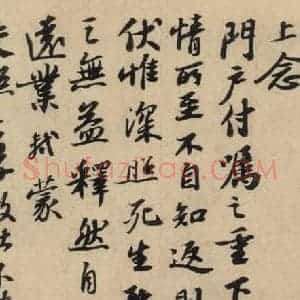 上念
門戶付囑之重下
情所至不自知返則
伏惟深照死生聚
之無益釋然自
遠業軾蒙